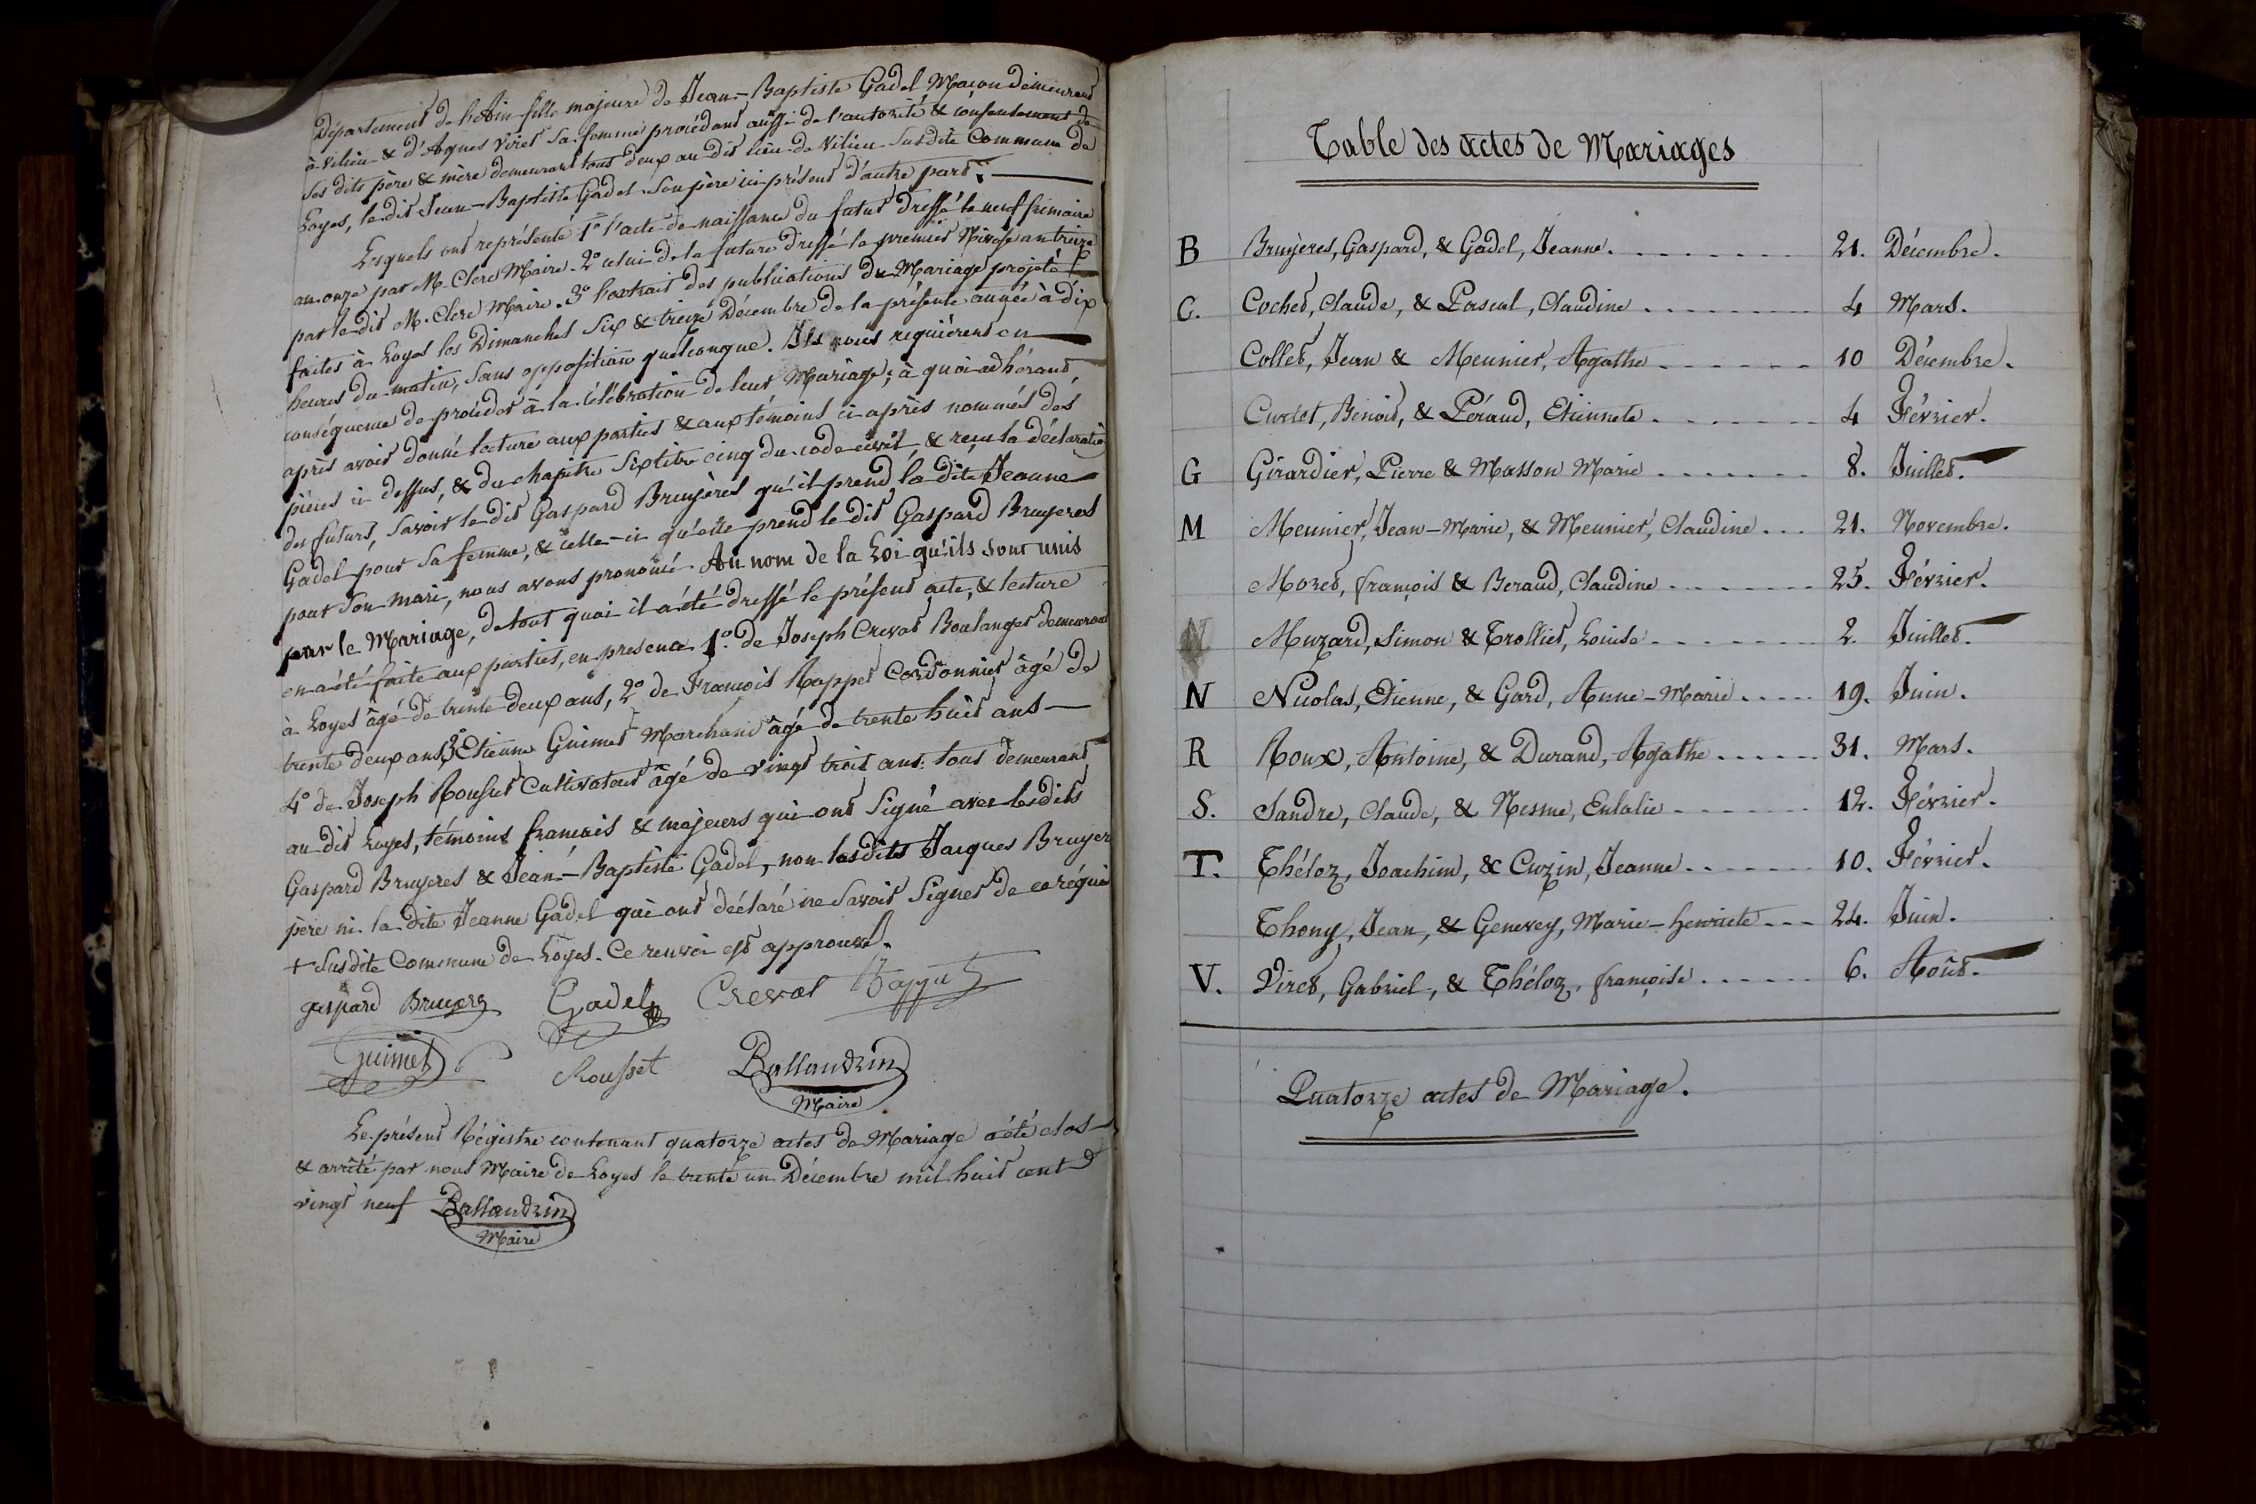 Département de l'Ain fille majeure de Jean-Baptiste Gadel Maçon demeurant
à Vilieu & d'Agnes Viret sa femme procédant aussi de l'autorité & consentement de
ses dits père & mère demeurant tous deux au dit lieu de Vilieu susdite Commune de
Loyes, le dit Jean-Baptiste Gadel son père ici présent d'autre part.
Lesquels ont représenté 1° l'acte de naissance du futur dressé le neuf frimaire
an onze par M. Clerc Maire. 2° celui de la future dressé le premier Nivose an treize
par le dit M. Clerc Maire. 3° l'extrait des publications du Mariage projeté
faites à Loyes les Dimanches six & treize Décembre de la présente année à dix
heures du matin, sans opposition quelconque. Ils nous requièrent en
conséquence de procéder à la célébration de leur Mariage; à quoi adhérant
après avoir donné lecture aux parties & aux témoins ci après nommés des
pièces ci dessus, & du chapitre six titre cinq du code civil, & reçu la déclaration
des futurs, savoir le dit Gaspard Bruyères qu'il prend la dite Jeanne
Gadel pour sa femme, & celle-ci qu'elle prend le dit Gaspard Bruyeres
pour son mari, nous avons prononcé Au nom de la Loi qu'ils sont unis
par le Mariage, de tout quoi il a été dressé le présent acte, & lecture
en a été faite aux parties, en presence 1°. de Joseph Crevat Boulanger demeurant
à Loyes âgé de trente deux ans, 2° de François Rappet Cordonnier âgé de
trente deux ans 3° Etienne Guimet Marchand âgé de trente huit ans
4° de Joseph Rousset Cultivateur âgé de vingt trois ans. tous demeurant
au dit Loyes, témoins français & majeurs qui ont signé avec les dits
Gaspard Bruyeres & Jean-Baptiste Gadel, non les dits Jacques Bruyer
père ni la dite Jeanne Gadel qui ont déclaré ne savoir signer de ce réquis
+ susdite Commune de Loyes. Ce renvoi est approuvé.
gaspard Bruyere Gadel Crevat Rappet
Guimet Rousset Ballandrin
Maire
Le présent Régistre contenant quatorze actes de Mariage a été clos
& arrêté par nous Maire de Loyes le trente un Décembre mil huit cent
vingt neuf Ballandrin
Maire
Table des actes de Mariages
B Bruyères, Gaspard, & Gadel, Jeanne. 21. Décembre.
C. Cochet, Claude, & Pascal, Claudine 4 Mars.
Collet, Jean & Meunier, Agathe 10 Décembre.
Curtet, Benoit, & Péraud, Etiennete 4 Février.
G Girardier, Pierre & Masson Marie 8. Juillet.
M Meunier, Jean-Marie, & Meunier, Claudine 21. Novembre.
Moret, françois & Beraud, Claudine 25. Février.
Muzard, Simon & Trollier, Louise 2. Juillet.
N Nicolas, Etienne, & Gard, Anne-Marie 19. Juin.
R Roux, Antoine, & Durand, Agathe 31. Mars.
S. Sandre, Claude, & Nesme, Eulalie 12. Février.
T. Théloz, Joachim, & Cuzin, Jeanne 10. Février.
Thony, Jean, & Genevey, Marie-henriete 24. Juin.
V. Viret, Gabriel, & Théloz, françoise 6. Août.
Quatorze actes de Mariage.